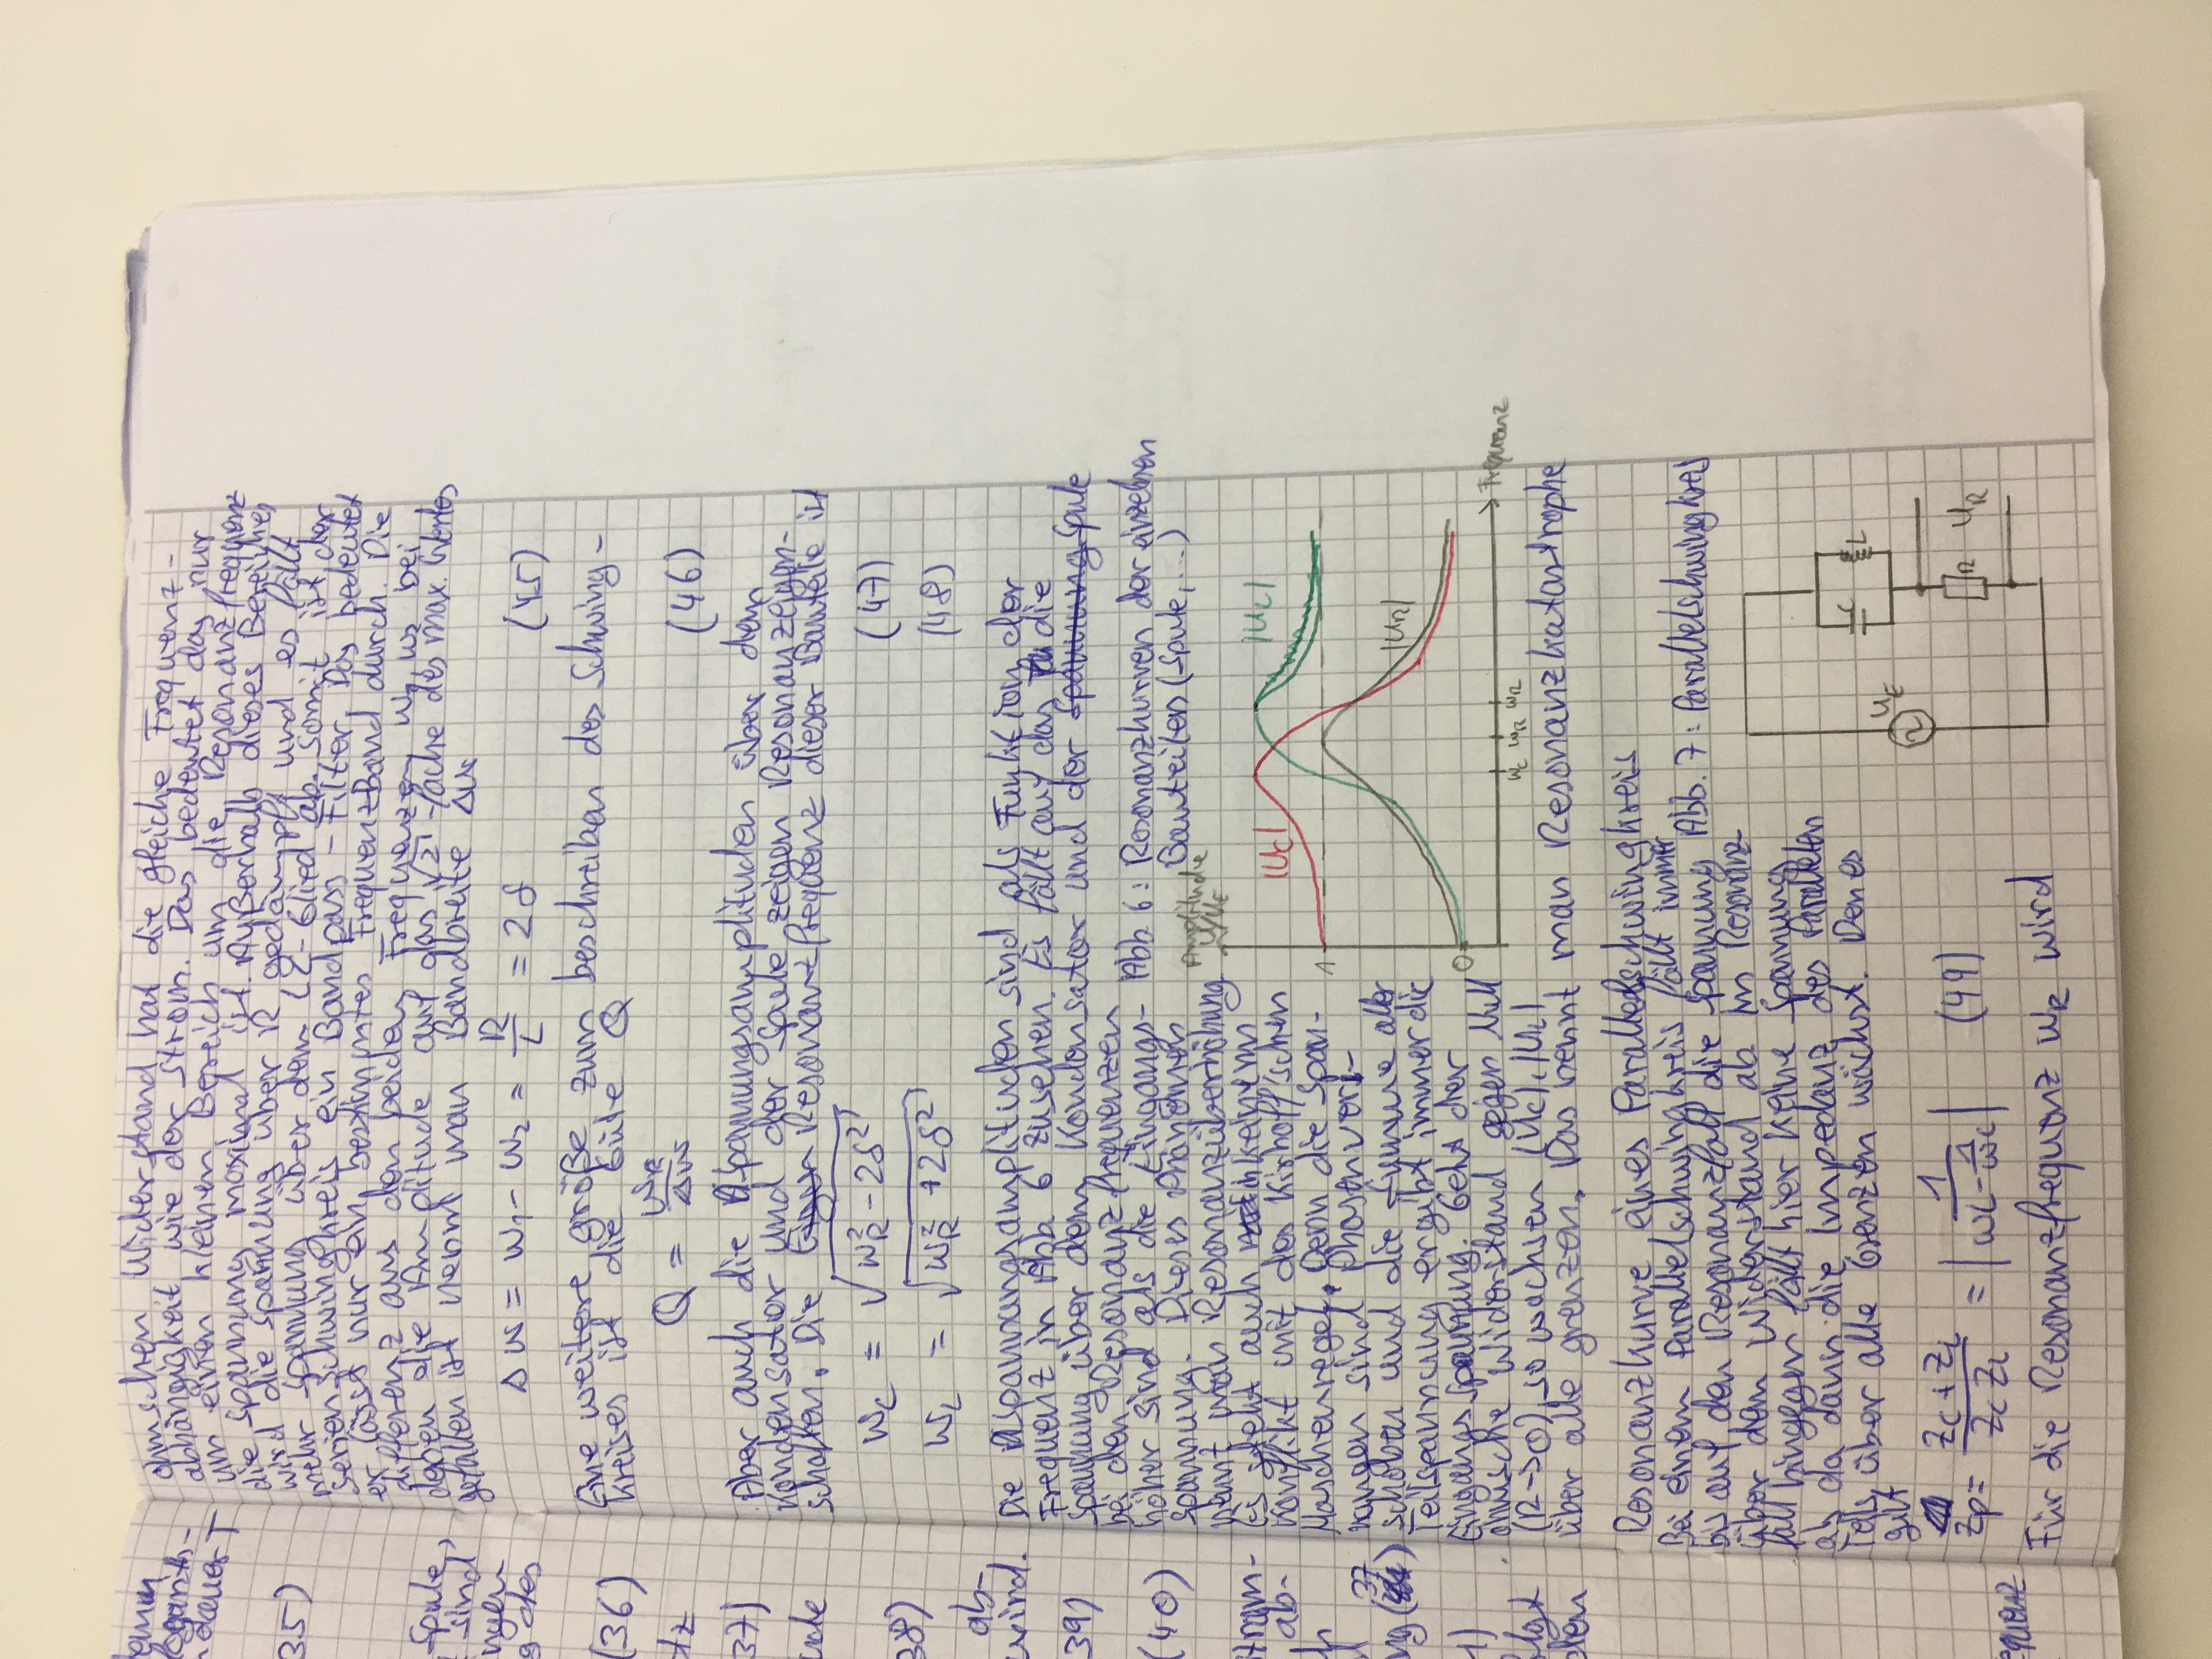 emm
logarith-
dauer T
35)
Spule,
sind
ngen
g des
(36)
tz
37)
38)
ab-
wird.
39)
(40)
trom-
ab-
37
ng
1)
lgt
den
equenz
ohmschen Widerstand hat die gleiche Frequenz-
abhängigkeit wie der Strom. Das bedeutet das nur
um einen kleinen Bereich um die Resonanzfrequenz
die Spannung maximal ist. Außerhalb dieses Bereiches
wird die Spannung über R gedämpft und es fällt
mehr Spannung über dem LC-Glied ab. Somit ist der
Serienschwingkreis ein Bandpass-Filter. Das bedeutet
er lässt nur ein bestimmtes Frequenzband durch. Die
differenz aus den beiden Frequenzen w1, w2 bei
denen die Amplitude auf das √2-fache des max. Wertes
gefallen ist nennt man Bandbreite Δw
Δw = w1 - w2 = R/L = 2δ (45)
Eine weitere größe zum beschreiben des Schwing-
kreises ist die Güte Q
Q = wR/Δw (46)
Aber auch die Spannungsamplituden über dem
Kondensator und der Spule zeigen Resonanzeigen-
schaften. Die Resonanzfrequenz dieser Bauteile ist
wC = √(wR² - 2δ²) (47)
wL = √(wR² + 2δ²) (48)
Die Spannungsamplituden sind als Funktion der
Frequenz in Abb 6 zusehen. Es fällt auf das die
Spannung über dem Kondensator und der Spannung Spule
bei den Resonanzfrequenzen
höher sind als die Eingangs-
spannung. Dieses Phänomen
nennt man Resonanzüberhöhung
Es steht auch keinem
Konflikt mit des Kirhoff'schen
Maschenregel. Denn die Span-
nungen sind Phasenver-
schoben und die Summe aller
Teilspannung ergibt immer die
Eingangsspannung. Geht der
ohmsche Widerstand gegen Null
(R→0), so wachsen |UC|, |UL|
über alle grenzen. Das nennt man Resonanzkatastrophe
Abb 6: Resonanzkurven der einzelnen
Bauteilen (Spule, ...)
Amplitude
U/UE
|UC|
|UL|
1
|UR|
0
Frequenz
wC wR wR
Resonanzkurve eines Parallelschwingkreis
Bei einem Parallelschwingkreis fällt immer
bis auf den Resonanzfall die Spannung
über dem Widerstand ab. Im Resonanz-
fall hingegen fällt hier keine Spannung
ab da dann die Impedanz des Parallelen
Teils über alle Grenzen wächst. Den es
gilt
Zp = (ZC + ZL)/(ZC ZL) = |1/(wC - 1/wL)| (49)
Für die Resonanzfrequenz wR wird
Abb. 7: Parallelschwingkreis
UE
C
L
R
UR